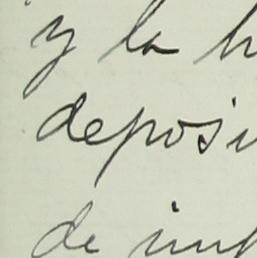 y la h
deposi
de imp